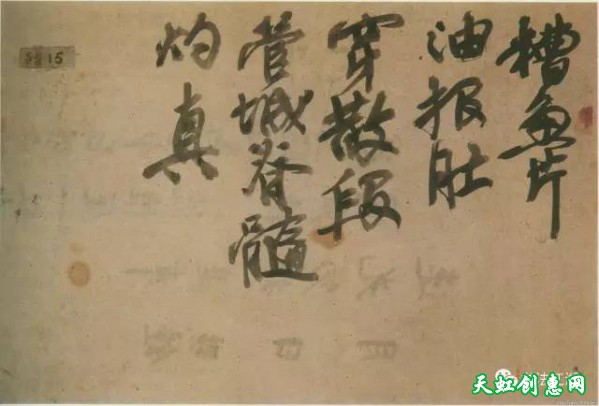 糟魚片
油报肚
穿散段
管城脊髓
灼真
15
天虹创惠网